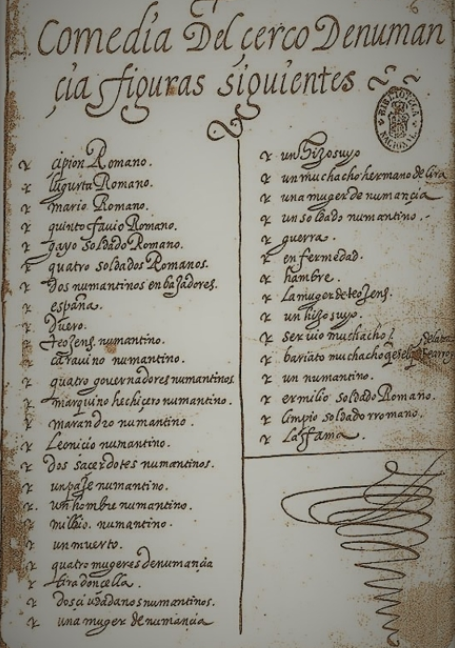 Comedia Del çerco Denuman
çia figuras siguientes
BIBLIOTECA NACIONAL
çipion Romano.
Iugurta Romano.
mario Romano.
quinto favio Romano.
gayo soldado Romano.
quatro soldados Romanos.
Dos numantinos enbaJadores.
españa.
Duero.
teoJenes numantino.
caravino numantino.
quatro governadores numantinos
marquino hechiçero numantino.
marandro numantino.
Leonicio numantino.
Dos sacerdotes numantinos.
un paJe numantino.
un hombre numantino.
milbio. numantino.
un muerto.
quatro mugeres denumançia
lira donçella.
dos çiudadanos numantinos.
una muger de numançia
un Hijo suyo
un muchacho hermano de lira
una muger de numançia
un soldado numantino.
guerra.
enfermedad.
hambre.
La muger de teoJens.
un hijo suyo.
servio muchacho
bariato muchacho que
un numantino.
ermilio soldado Romano.
limpio soldado rromano.
La ffama